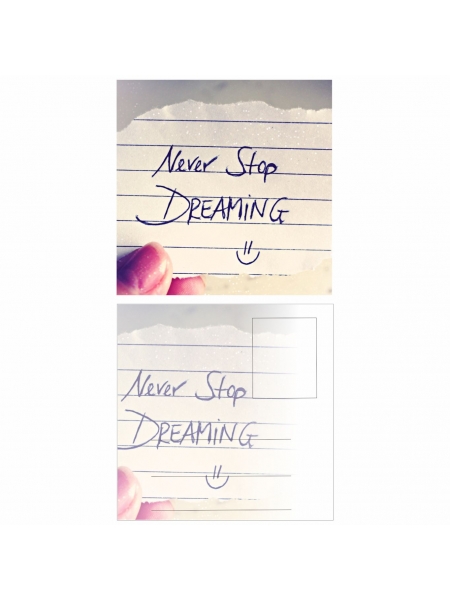 Never Stop
DREAMiNG
Never Stop
DREAMiNG